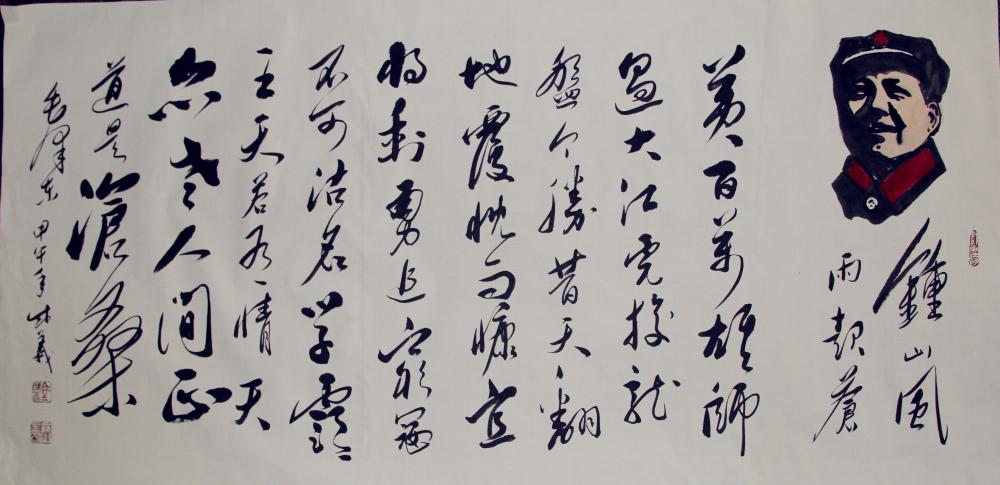 鍾山風
雨起蒼
黃百萬雄師
過大江虎踞龍
盤今勝昔天翻
地覆慨而慷宜
將剩勇追窮寇
不可沽名學霸
王天若有情天
亦老人間正
道是滄桑
毛澤东 甲午年